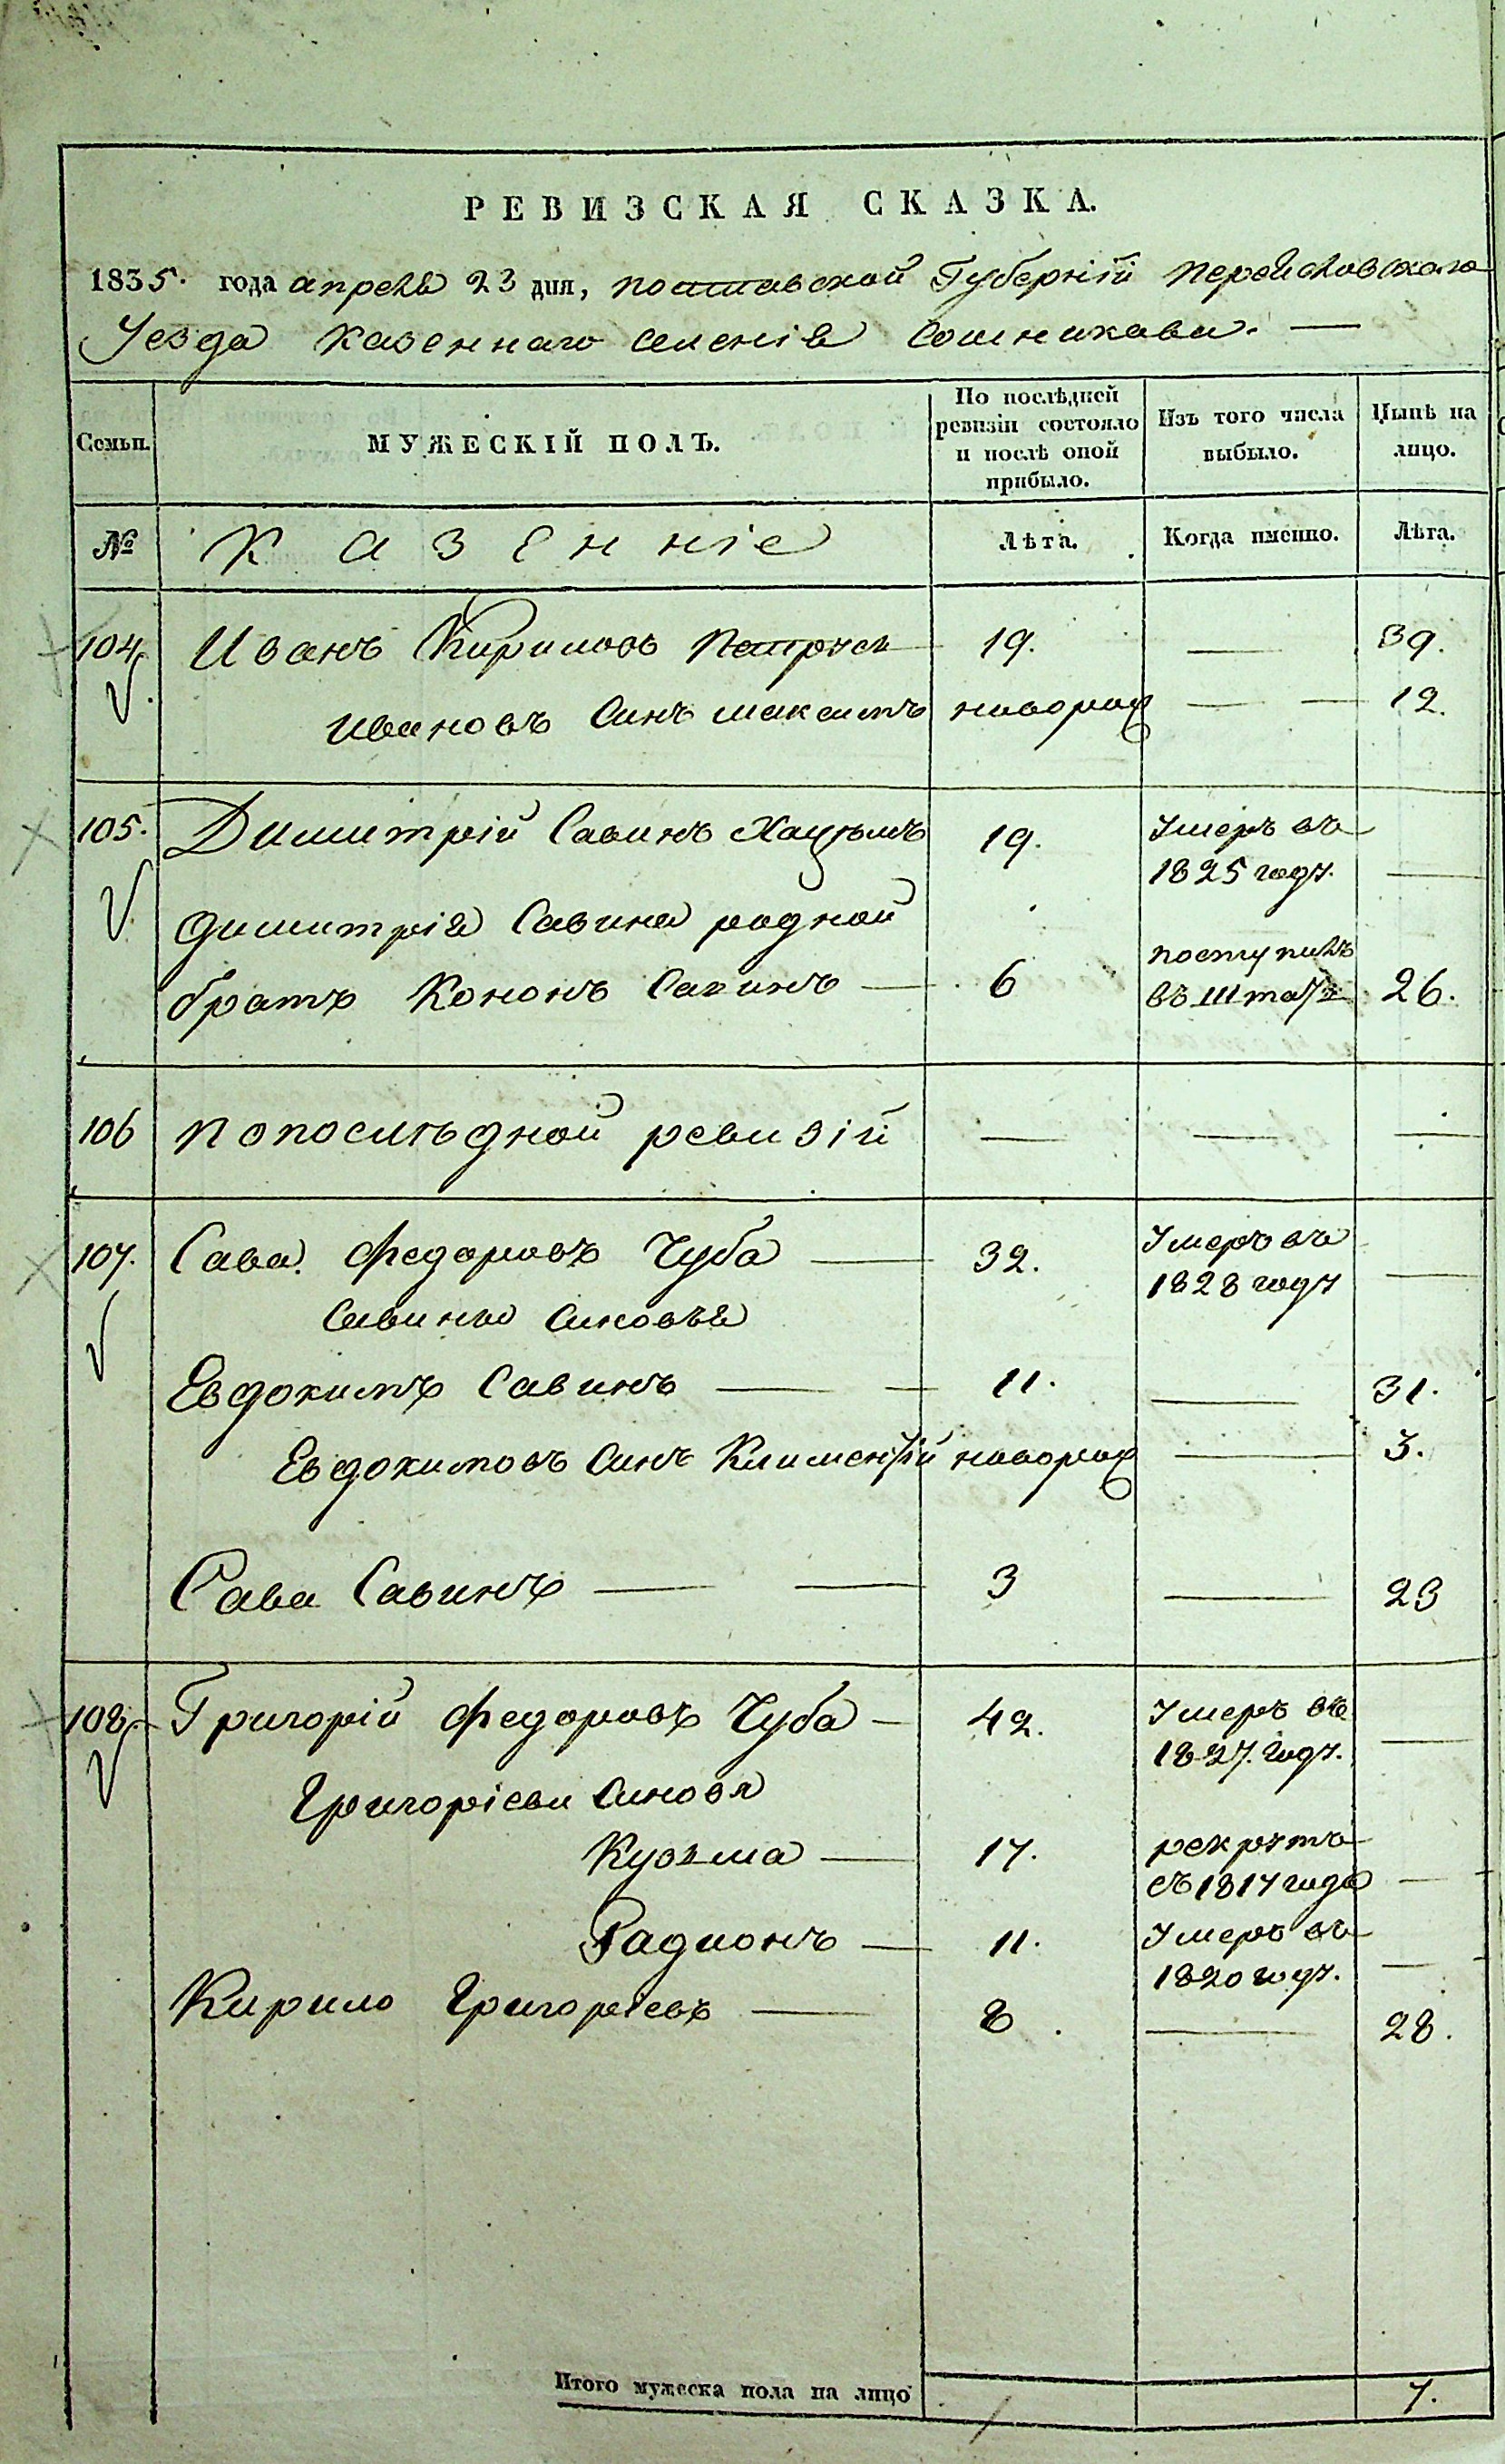 РЕВИЗСКАЯ СКАЗКА.
1835. года апреля 23 дня, полтавской Губерніи переясловскаго
Уезда казеннаго селенія Сошникава. —
Семьи.
МУЖЕСКІЙ ПОЛЪ.
По послѣдней ревизіи состояло и послѣ оной прибыло.
Изъ того числа выбыло.
Нынѣ на лицо.
№ Казенніе Лѣта. Когда именно. Лѣта.
104. Иванъ Кириловъ Петрусь 19. — 39.
Ивановъ Синъ максимъноворож — — 12.
105. Димитрій Савинъ 19. Умеръ въ 1825 году. —
димитрія Савина родной
братъ Кононъ Савинъ — 6 поступилъ въ Штатъ 26.
106 Попослѣдной ревизій — — —
107. Сава Федоровъ Чуба — 32. Умеръ въ 1828 году —
Савины Синовья
Евдокимъ Савинъ — — 11. — 31.
Евдокимовъ Синъ Климентій новорож — 3.
Сава Савинъ — — 3 — 23
108. Григорій Федоровъ Чуба — 42. Умеръ въ 1827. году. —
Григорієви Синовя
Кузьма — 17. рекрутъ съ 1817 года —
Радионъ — 11. Умеръ въ 1820 году. —
Кирило Григорієвъ — 8. — 28.
Итого мужеска пола на лицо 7.